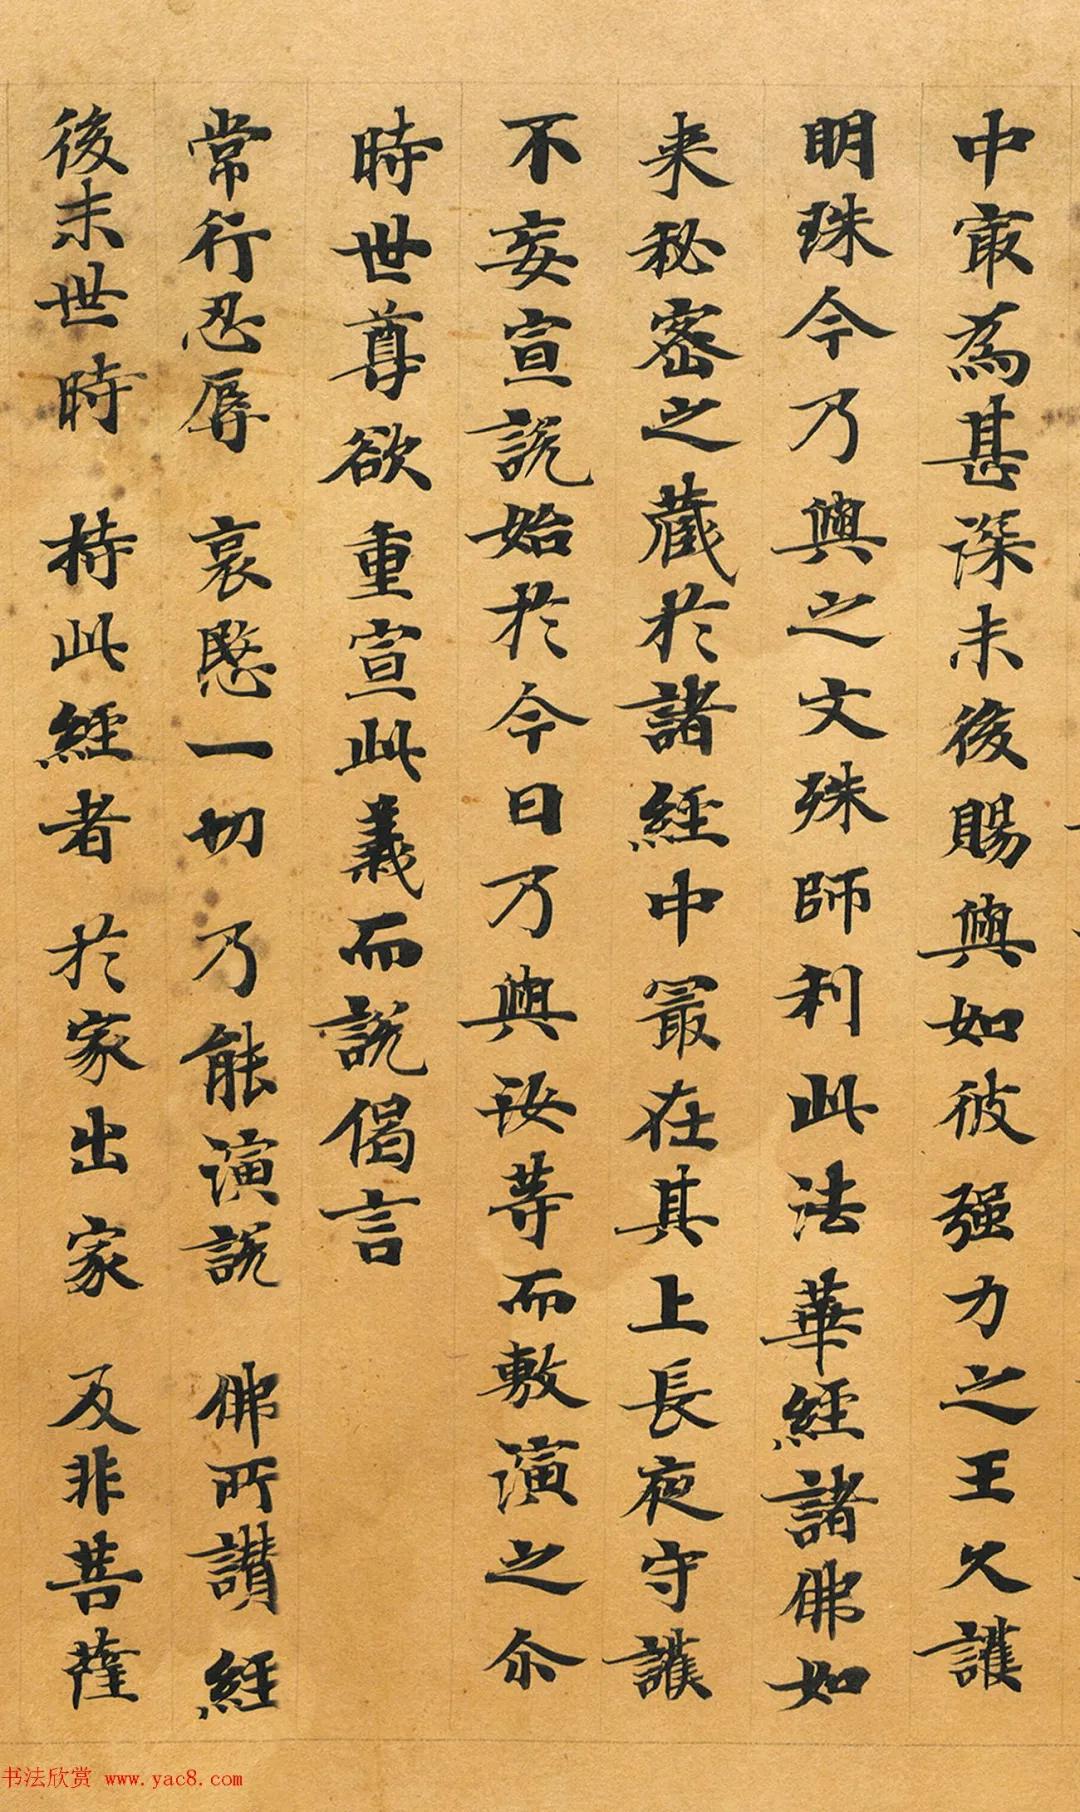 中㝡為甚深末後賜與如彼强力之王久護
明珠今乃與之文殊師利此法華經諸佛如
来秘密之藏於諸經中㝡在其上長夜守護
不妄宣說始於今日乃與汝等而敷演之尒
時世尊欲重宣此義而說偈言
常行忍辱 哀愍一切 乃能演說 佛所讃經
後末世時 持此經者 於家出家 及非菩薩
书法欣赏 www.yac8.com